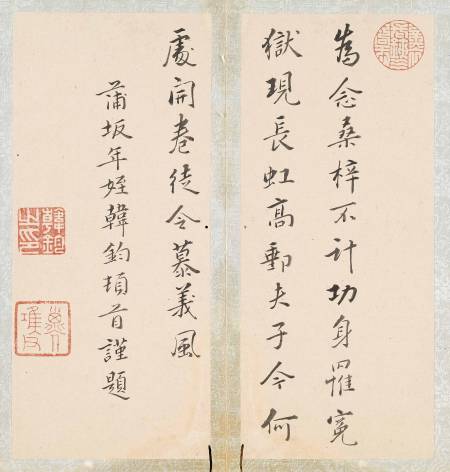 為念桑梓不計功身罹冤
獄現長虹高郵夫子今何
處開卷徒令慕義風
蒲坂年姪韓鈞頓首謹題
韓鈞之印